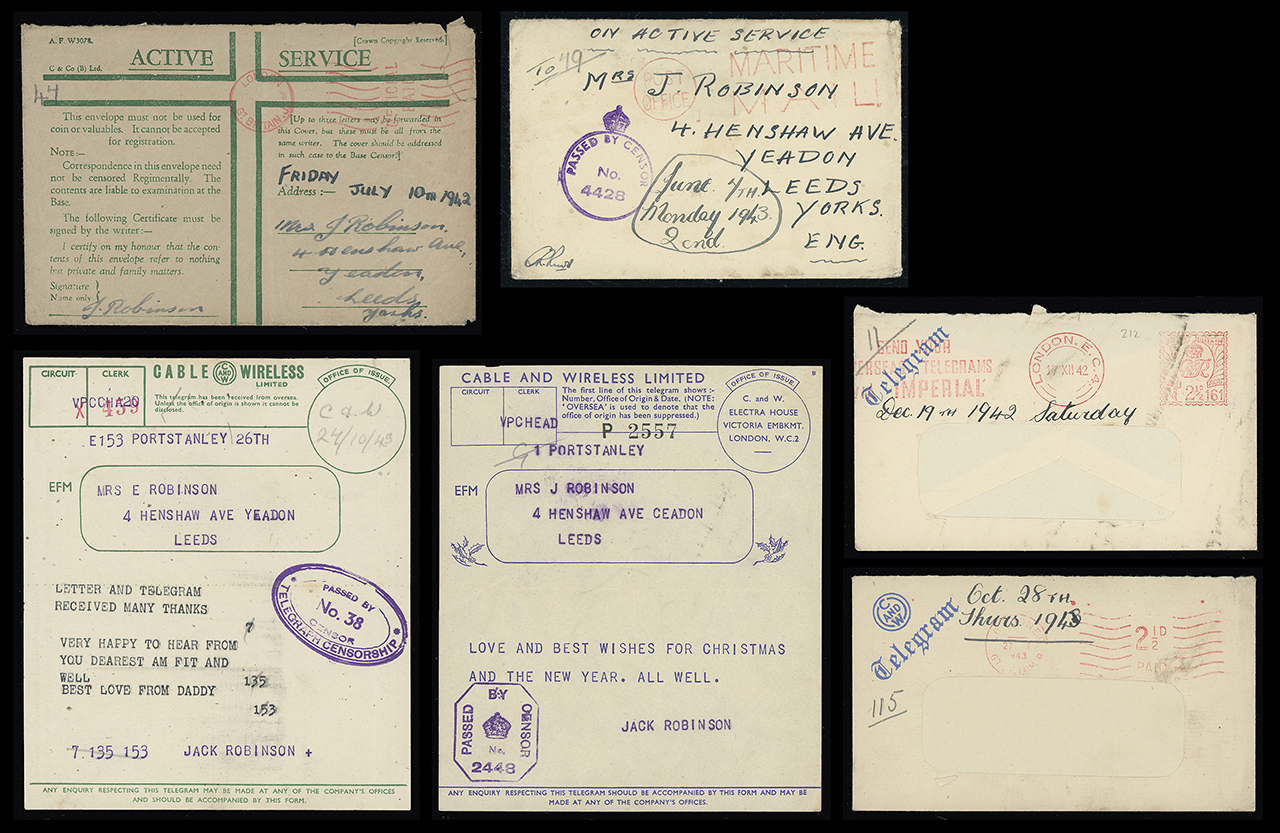 A. F. W3078.
[Crown Copyright Reserved.]
C & Co (B) Ltd.
ACTIVE SERVICE
44
LONDON
GT. BRITAIN
OFFICIAL
PAID
This envelope must not be used for
coin or valuables. It cannot be accepted
for registration.
NOTE:—
Correspondence in this envelope need
not be censored Regimentally. The
contents are liable to examination at the
Base.
The following Certificate must be
signed by the writer:—
I certify on my honour that the con-
tents of this envelope refer to nothing
but private and family matters.
Signature }
Name only }
J. Robinson
[Up to three letters may be forwarded in
this Cover, but these must be all from the
same writer. The cover should be addressed
in such case to the Base Censor.]
FRIDAY
Address:— JULY 10TH 1942
Mrs. J Robinson.
4 Henshaw Ave.,
Yeadon,
Leeds,
Yorks.
ON ACTIVE SERVICE
TO 49
POST
OFFICE
MARITIME
MAIL
MRS J. ROBINSON
4. HENSHAW AVE.
YEADON
LEEDS
YORKS.
ENG.
PASSED BY CENSOR
No.
4428
June. 7TH.
Monday 1943.
2nd.
CIRCUIT
CLERK
CABLE AND WIRELESS
LIMITED
This telegram has been received from overseas.
Unless the office of origin is shown it cannot be
disclosed.
OFFICE OF ISSUE
VPCCHA20
X 459
C & W
24/10/43
E153 PORTSTANLEY 26TH
EFM
MRS E ROBINSON
4 HENSHAW AVE YEADON
LEEDS
LETTER AND TELEGRAM
RECEIVED MANY THANKS
7
VERY HAPPY TO HEAR FROM
YOU DEAREST AM FIT AND
WELL
135
BEST LOVE FROM DADDY
153
PASSED BY
No. 38
CENSOR
* TELEGRAPH CENSORSHIP *
7 135 153 JACK ROBINSON +
ANY ENQUIRY RESPECTING THIS TELEGRAM MAY BE MADE AT ANY OF THE COMPANY'S OFFICES
AND SHOULD BE ACCOMPANIED BY THIS FORM.
CABLE AND WIRELESS LIMITED
B
CIRCUIT
CLERK
The first line of this telegram shows :-
Number, Office of Origin & Date. (NOTE:
"OVERSEA" is used to denote that the
office of origin has been suppressed.)
OFFICE OF ISSUE
C. and W.
ELECTRA HOUSE
VICTORIA EMBKMT.
LONDON, W.C.2
VPCHEAD
P 2557
1 PORTSTANLEY
EFM
MRS J ROBINSON
4 HENSHAW AVE CEADON
LEEDS
LOVE AND BEST WISHES FOR CHRISTMAS
AND THE NEW YEAR. ALL WELL.
JACK ROBINSON
PASSED BY CENSOR
No.
2448
ANY ENQUIRY RESPECTING THIS TELEGRAM SHOULD BE ACCOMPANIED BY THIS FORM AND MAY BE
MADE AT ANY OF THE COMPANY'S OFFICES.
11
212
SEND YOUR
TELEGRAMS
'IMPERIAL'
Telegram
LONDON. E.C.
17 XII 42
N 2½ 161
Dec. 19TH 1942 Saturday
C AND W
Telegram
Oct. 28TH.
Thurs. 1943
27
1943
2½D
PAID
115